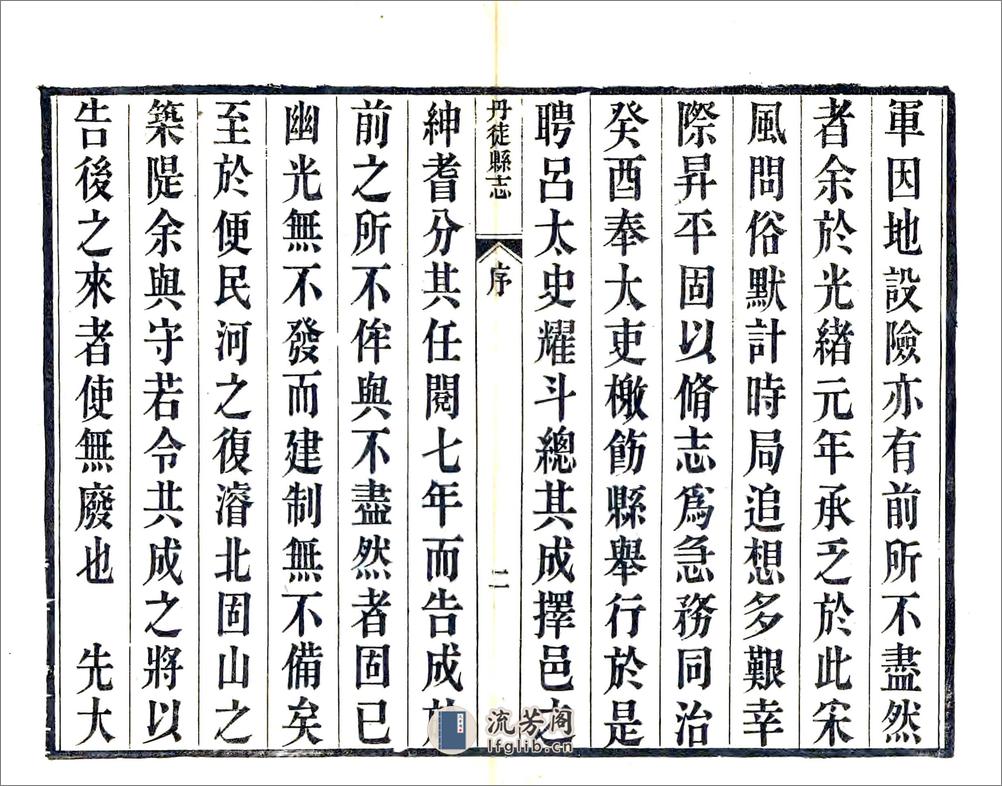 軍因地設險亦有前所不盡然
者余於光緒元年承乏於此采
風問俗默計時局追想多艱幸
際昇平固以脩志爲急務同治
癸酉奉大吏檄飭縣舉行於是
聘呂太史耀斗總其成擇邑之
丹徒縣志 序 二
紳耆分其任閱七年而告成於
前之所不侔與不盡然者固已
幽光無不發而建制無不備矣
至於便民河之復濬北固山之
築隄余與守若令共成之將以
告後之來者使無廢也 先大
流芳阁
lfglib.cn